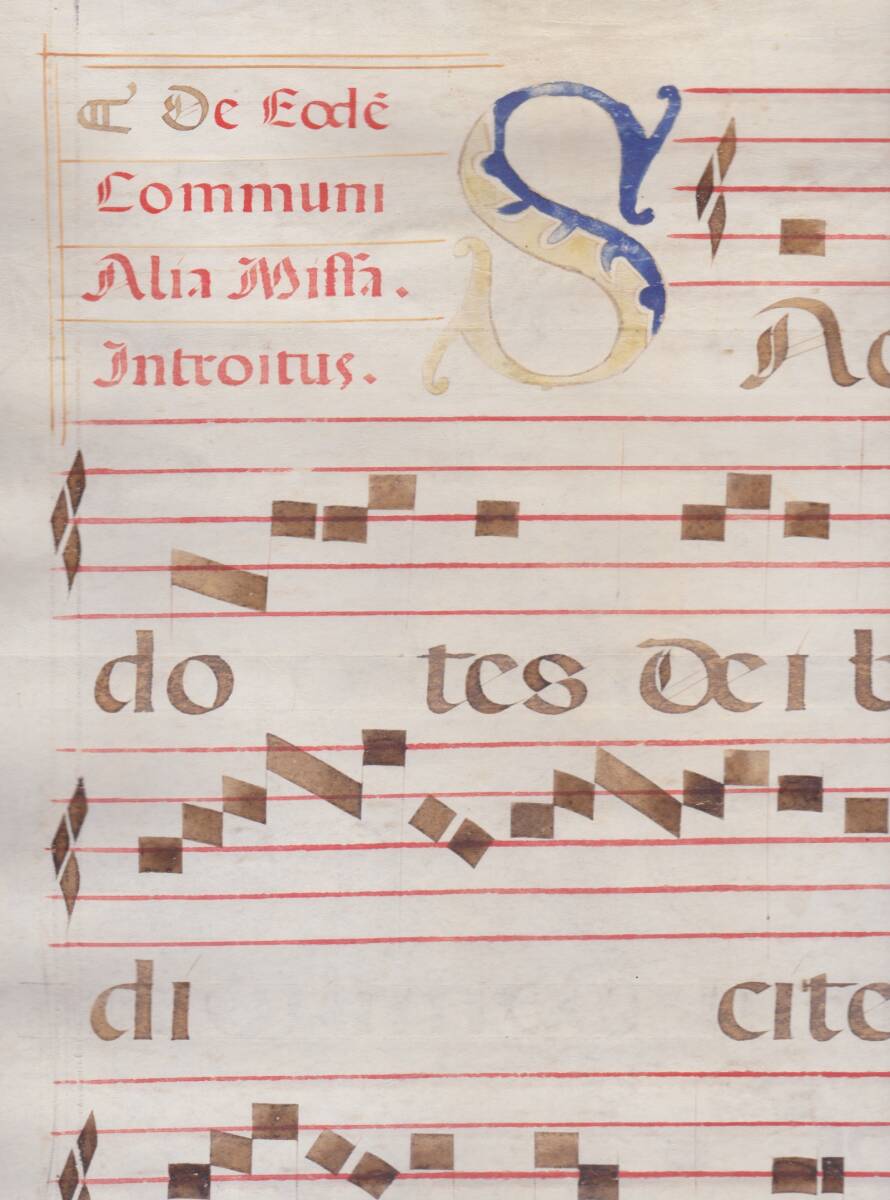 A De Eodē
Communi
Alia Missa.
Introitus.
SAc
do tes Dei b
di cite